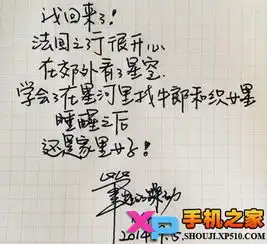 我回来了!
法国之行很开心
在郊外看了星空
学会了在星河里找牛郎和织女星
睡醒之后
还是家里好!
2014.
XP
手机之家
SHOUJI.XP510.COM